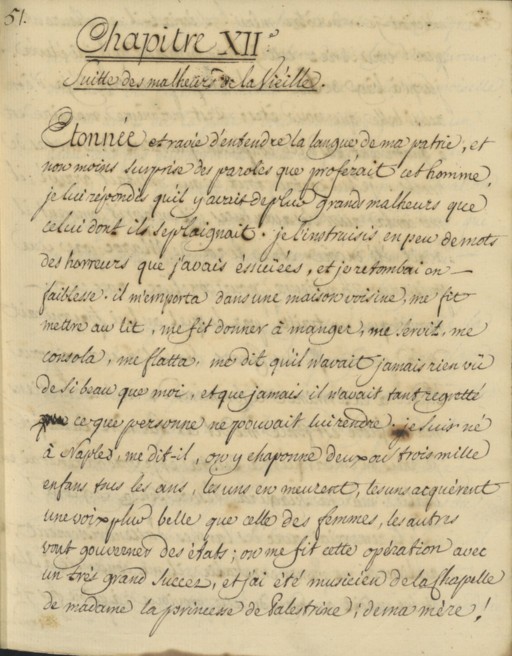 51.
Chapitre XII.e
Suitte des malheurs de la Vieille.
Etonnée et ravie d'entendre la langue de ma patrie, et
non moins surprise des paroles que proférait cet homme,
je lui répondis qu'il y avait de plus grands malheurs que
celui dont il se plaignait. je l'instruisis en peu de mots
des horreurs que j'avais éssuiées, et je retombai en
faiblesse. il m'emporta dans une maison voisine, me fit
mettre au lit, me fit donner à manger, me servit, me
consola, me flatta, me dit qu'il n'avait jamais rien vû
de si beau que moi, et que jamais il n'avait tant regretté
ce que personne ne pouvait lui rendre. je suis né
à Naples, me dit-il, on y chaponne deux ou trois mille
enfans tous les ans, les uns en meurent, les uns acquèrent
une voix plus belle que celle des femmes, les autres
vont gouverner des états; on me fit cette opération avec
un très grand succez, et j'ai été musicien de la Chapelle
de madame la princesse de Palestrine; de ma mère!